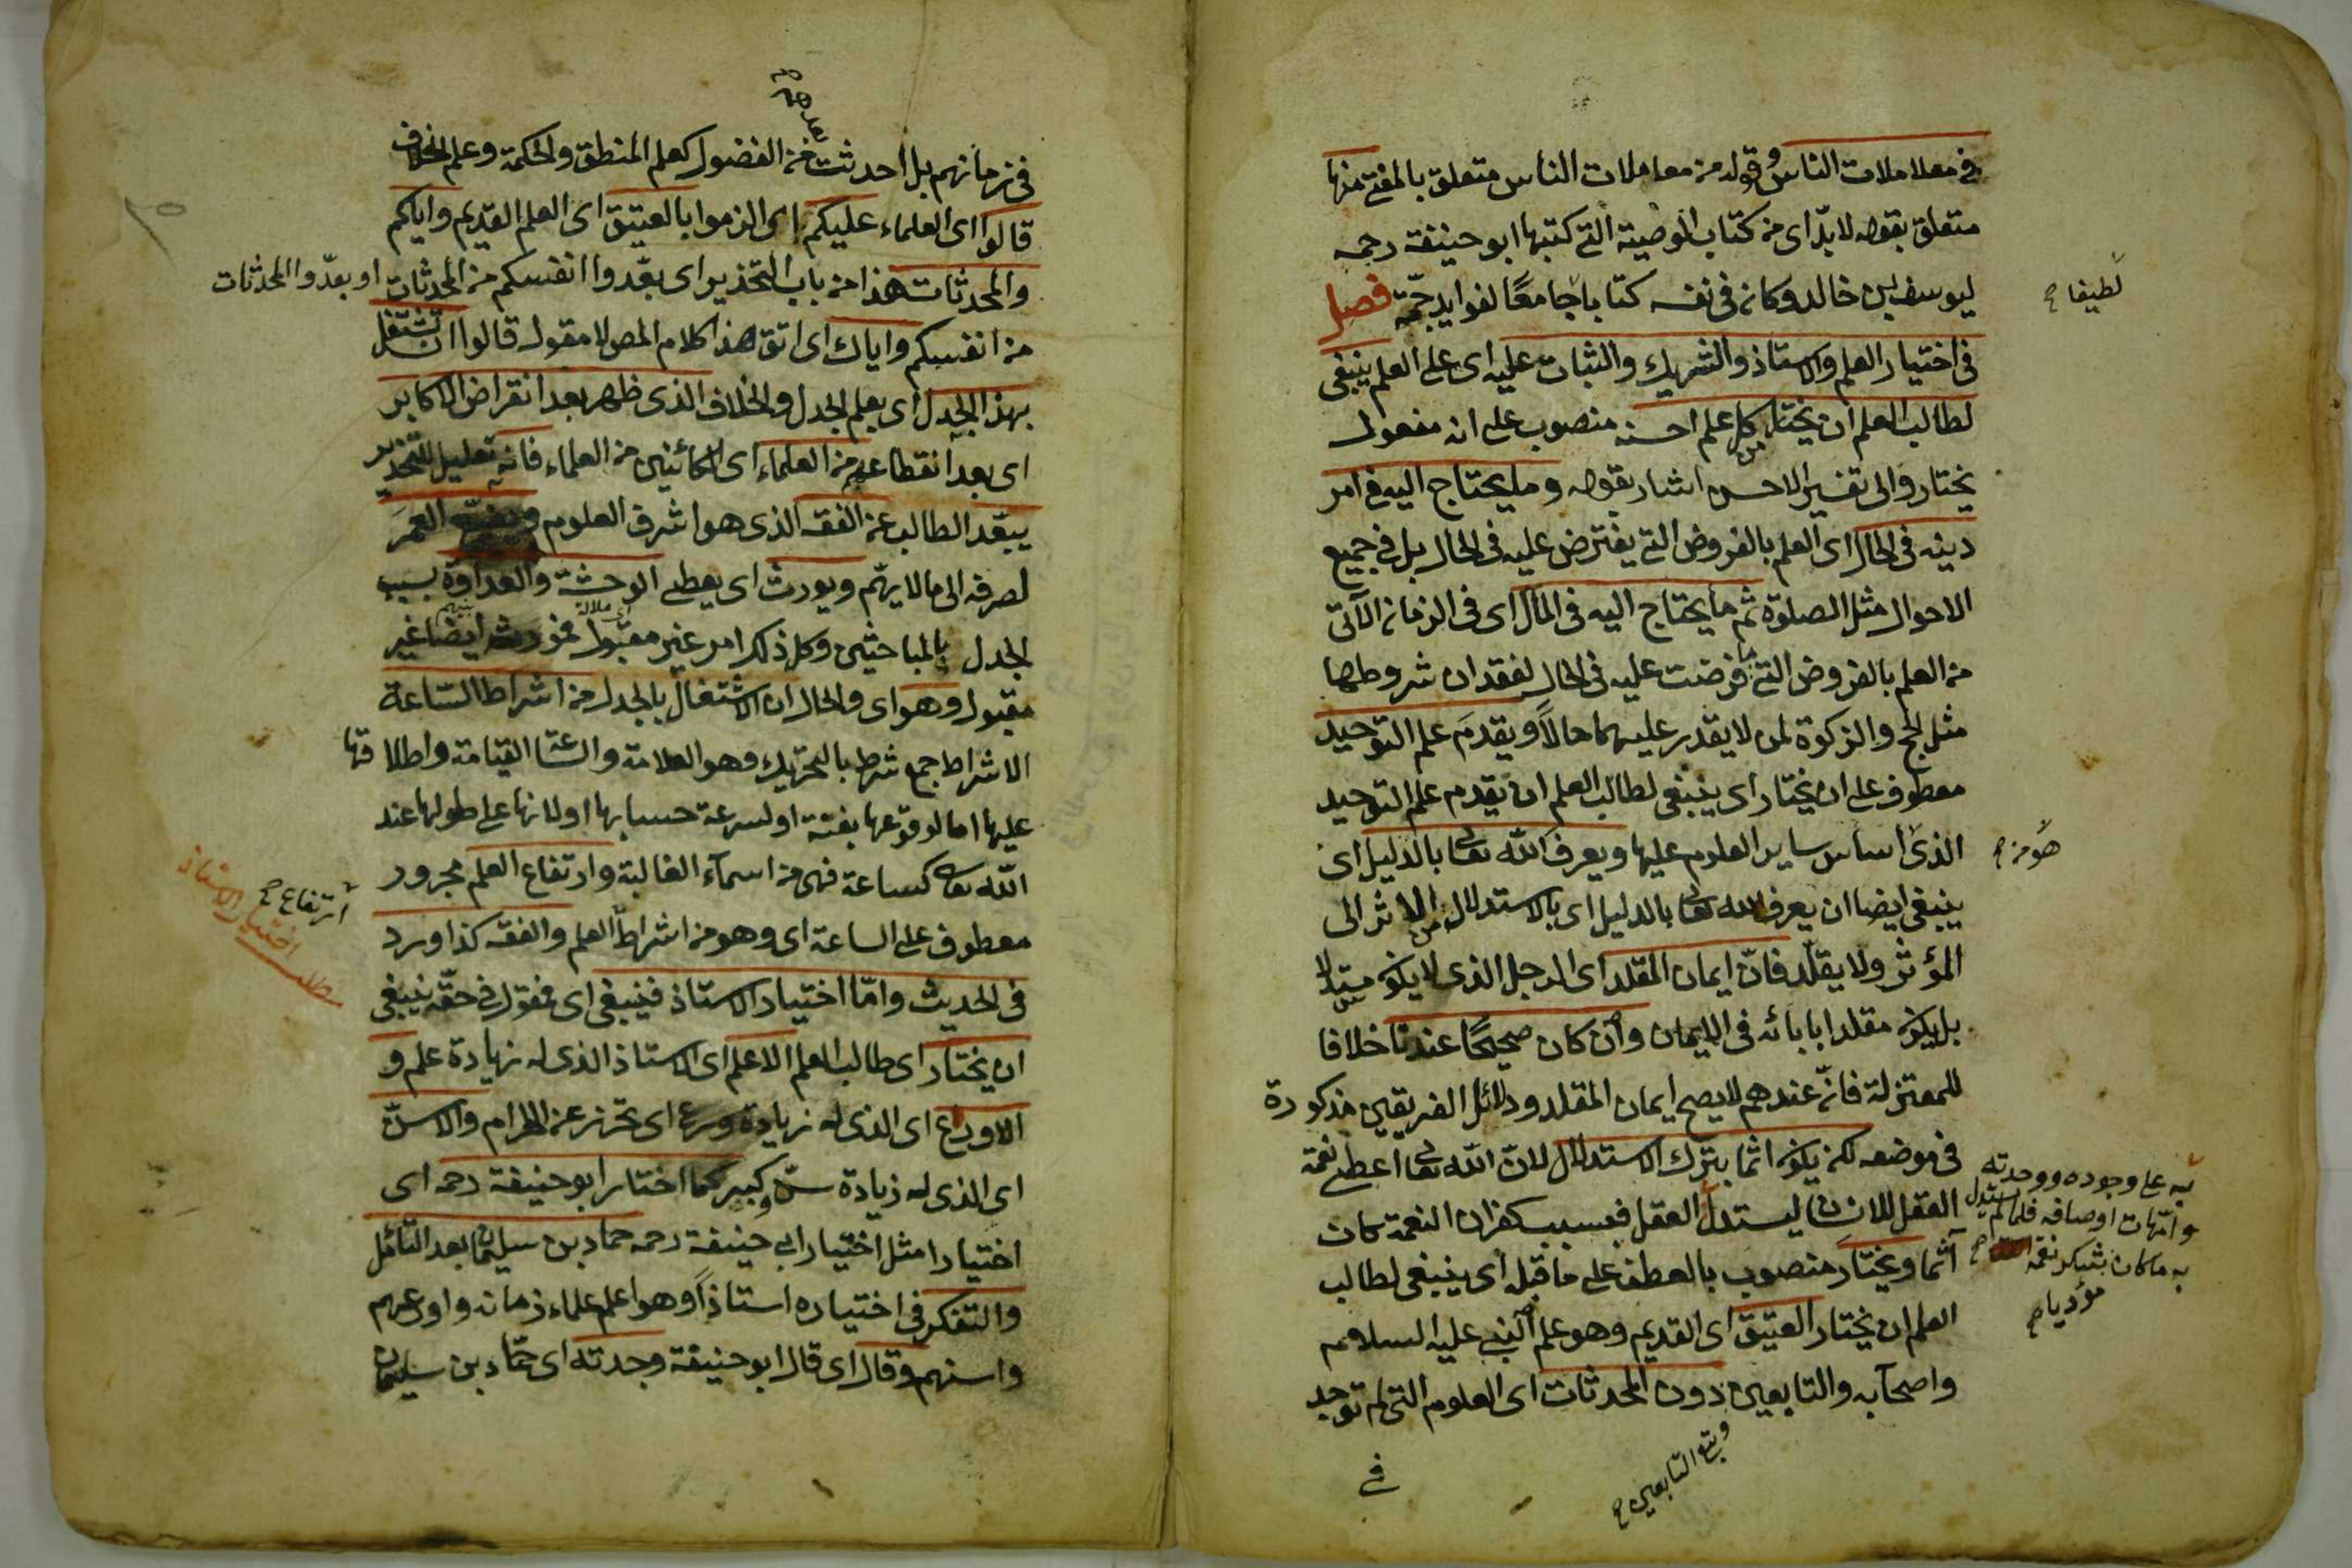 في معلاملات الناس وقوله من معاملات الناس متعلق بالمفتي منها
متعلق بقوله لا بدّ اى من كتاب الوصية التي كتبها ابو حنيفة رحمه
ليوسف بن خالد وكان في نفسه كتابا جامعًا لفوايد جمّة فصل
لطيفا صح
في اختيار العلم والاستاذ والشريك والثبات عليه اى على العلم ينبغى
لطالب العلم ان يختار من كل علم احسنه منصوب على انه مفعول
يختار والى تفسير الاحسن اشار بقوله وما يحتاج اليه في امر
دينه في الحال اى العلم بالفروض التي يفترض عليه في الحال بل في جميع
الاحوال مثل الصلوة ثم ما يحتاج اليه في المآل اى في الزمان الآتى
من العلم بالفروض التي ما فرضت عليه في الحال لفقدان شروطها
مثل الحج والزكوة لمن لا يقدر عليهما حالًا ويقدمَ علم التوحيد
معطوف على ان يختار اى ينبغى لطالب العلم ان يقدم علم التوحيد
الذى اساس ساير العلوم عليها ويعرف الله تعالى بالدليل اى
هو من صح
ينبغى ايضا ان يعرف الله تعالى بالدليل اى بالاستدلال من الاثر الى
المؤثر ولا يقلّد فانّ ايمان المقلد اى الرجل الذى لا يكون مستدلا
بل يكون مقلدا بابائه في الايمان وان كان صحيحًا عندنا خلافا
للمعتزلة فانّ عندهم لا يصح ايمان المقلد ودلائل الفريقين مذكورة
في موضعه لكن يكون اثما بترك الاستدلال لانّ الله تعالى اعطى نعمة
العقل للانسان ليستدلّ العقل فبسبب كفران النعمة كان
به على وجوده ووحدته
وامّهات اوصافه فلما لم يستدل
به ما كان بشكر نعمة
مؤديا صح
آثما ويختارَ منصوب بالعطف على ما قبله اى ينبغى لطالب
العلم ان يختار العتيق اى القديم وهو علم النبي عليه السلام
واصحآبه والتابعين دون المحدثات اى العلوم التي لم توجد
وتبع التابعين صح
في
في زمانهم بل احدثت من الفضول كعلم المنطق والحكمة وعلم الخلاف
بعدهم صح
قالوا اى العلماء عليكم اى الزموا بالعتيق اى العلم القديم واياكم
والمحدثات هذا من باب التحذير اى بعّدوا انفسكم من المحدثات او بعّدوا المحدثات
من انفسكم واياك اى اتق هذا كلام المص لا مقول قالوا ان تشتغل
بهذا الجدل اى بعلم الجدل والخلاف الذى ظهر بعد انقراض الاكابر
اى بعد انقطاعهم من العلماء اى الكائنين من العلماء فانه تعليل للتحذير
يبعّد الطالب عن الفقه الذى هو اشرف العلوم ويضيّع العمرَ
لصرفه الى ما لا يهمّ ويورث اى يعطى الوحشة والعداوة بسبب
اى ملالة
بينهم
الجدل بالمباحثين وكل ذلك امر غير مقبول فمورث ايضا غير
مقبول وهو اى والحال ان الاشتغال بالجدل من اشراط الساعة
الاشراط جمع شرط بالتحريك وهو العلامة والساعة القيامة واطلاقها
عليها اما لوقوعها بغتة او لسرعة حسابها او لانها على طولها عند
الله تعالى كساعة فهى من اسمآء الغالبة وارتفاع العلم مجرور
معطوف على الساعة اى وهو من اشراط العلم والفقه كذا ورد
ارتفاع صح
مطلب اختيار الاستاذ
في الحديث وامّا اختيار الاستاذ فينبغى اى فمقول في حقّه ينبغى
ان يختار اى طالب العلم الاعلم اى الاستاذ الذى له زيادة علم و
الاورع اى الذى له زيادة ورع اى تحرّز عن الحرام والاسنّ
اى الذى له زيادة سنّ وكبر كما اختار ابو حنيفة رحمه اى
اختيارا مثل اختيار ابي حنيفة رحمه حماد بن سليمان بعد التأمل
والتفكر في اختياره استاذًا وهو اعلم علماء زمانه واورعهم
واسنهم وقال اى قال ابو حنيفة وجدته اى حمّاد بن سليمان